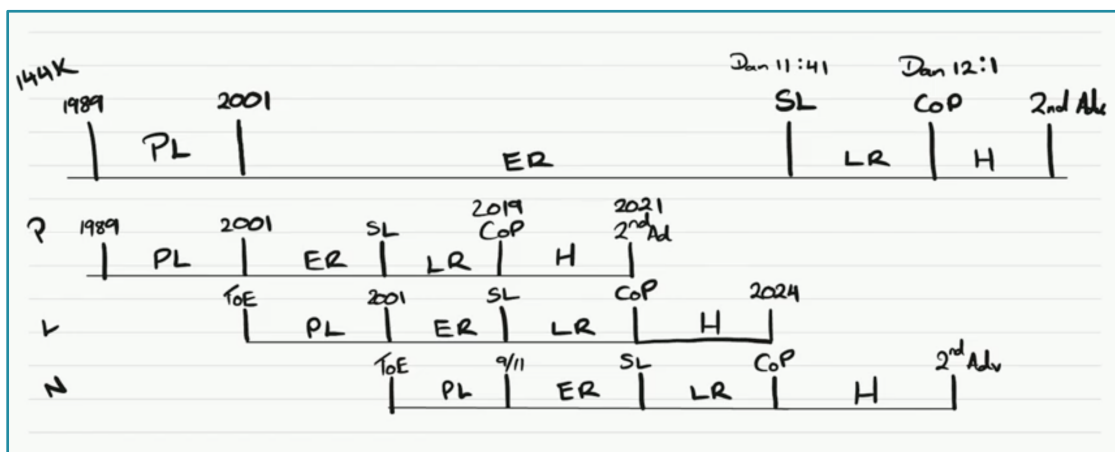 144K
Dan 11:41 Dan 12:1
1989 2001 SL CoP 2nd Adv
PL ER LR H
P 1989 2001 SL 2019 CoP 2021 2nd Ad
PL ER LR H
ToE 2001 SL CoP 2024
L PL ER LR H
ToE 9/11 SL CoP 2nd Adv
N PL ER LR H